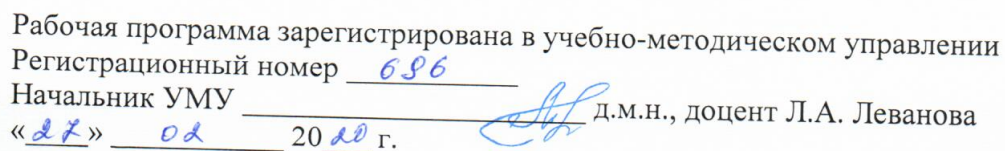 Рабочая программа зарегистрирована в учебно-методическом управлении
Регистрационный номер 696
Начальник УМУ д.м.н., доцент Л.А. Леванова
«27» 02 2020 г.